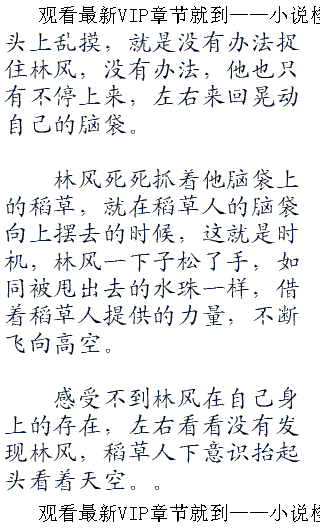 观看最新VIP章节就到——小说
头上乱摸，就是没有办法捉
住林风，没有办法，他也只
有不停上来，左右来回晃动
自己的脑袋。
林风死死抓着他脑袋上
的稻草，就在稻草人的脑袋
向上摆去的时候，这就是时
机，林风一下子松了手，如
同被甩出去的水珠一样，借
着稻草人提供的力量，不断
飞向高空。
感受不到林风在自己身
上的存在，左右看看没有发
现林风，稻草人下意识抬起
头看着天空。。
观看最新VIP章节就到——小说